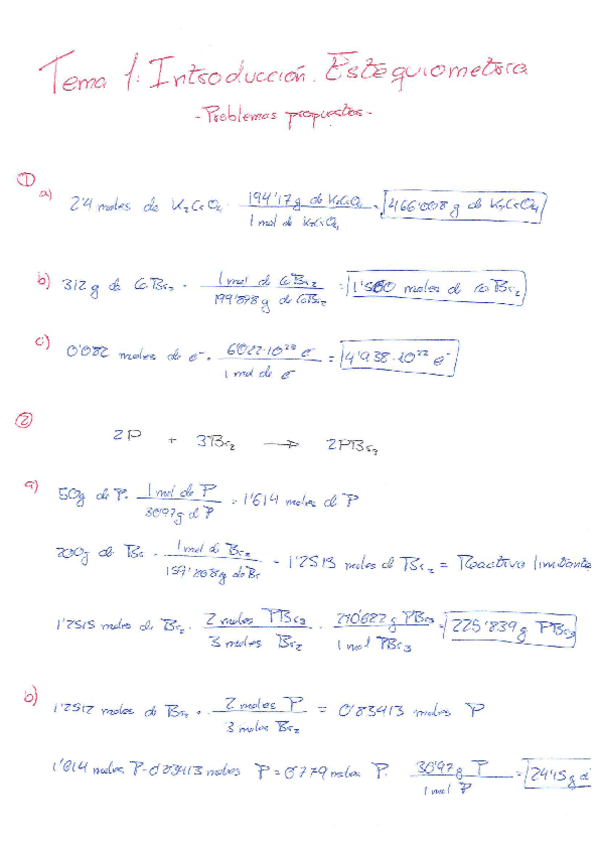 Tema 1: Introducción. Estequiometria
- Problemas propuestos -
①
a) 2'4 moles de K₂CrO₄ · 194'17 g de K₂CrO₄ / 1 mol de K₂CrO₄ = 466'008 g de K₂CrO₄
b) 312 g de CaBr₂ · 1 mol de CaBr₂ / 199'898 g de CaBr₂ = 1'560 moles de CaBr₂
c) 0'082 moles de e⁻ · 6'022·10²³ e⁻ / 1 mol de e⁻ = 4'938·10²² e⁻
②
2P + 3Br₂ → 2PBr₃
a) 50g de P · 1 mol de P / 30'97g d P = 1'614 moles de P
200g de Br · 1 mol de Br₂ / 159'808g de Br = 1'2513 moles de Br₂ = Reactivo limitante
1'2515 moles de Br₂ · 2 moles PBr₃ / 3 moles Br₂ · 270'682 g PBr₃ / 1 mol PBr₃ = 225'839 g PBr₃
b) 1'2512 moles de Br₂ · 2 moles P / 3 moles Br₂ = 0'83413 moles P
1'614 moles P - 0'83413 moles P = 0'779 moles P · 30'97 g P / 1 mol P = 24'15 g d